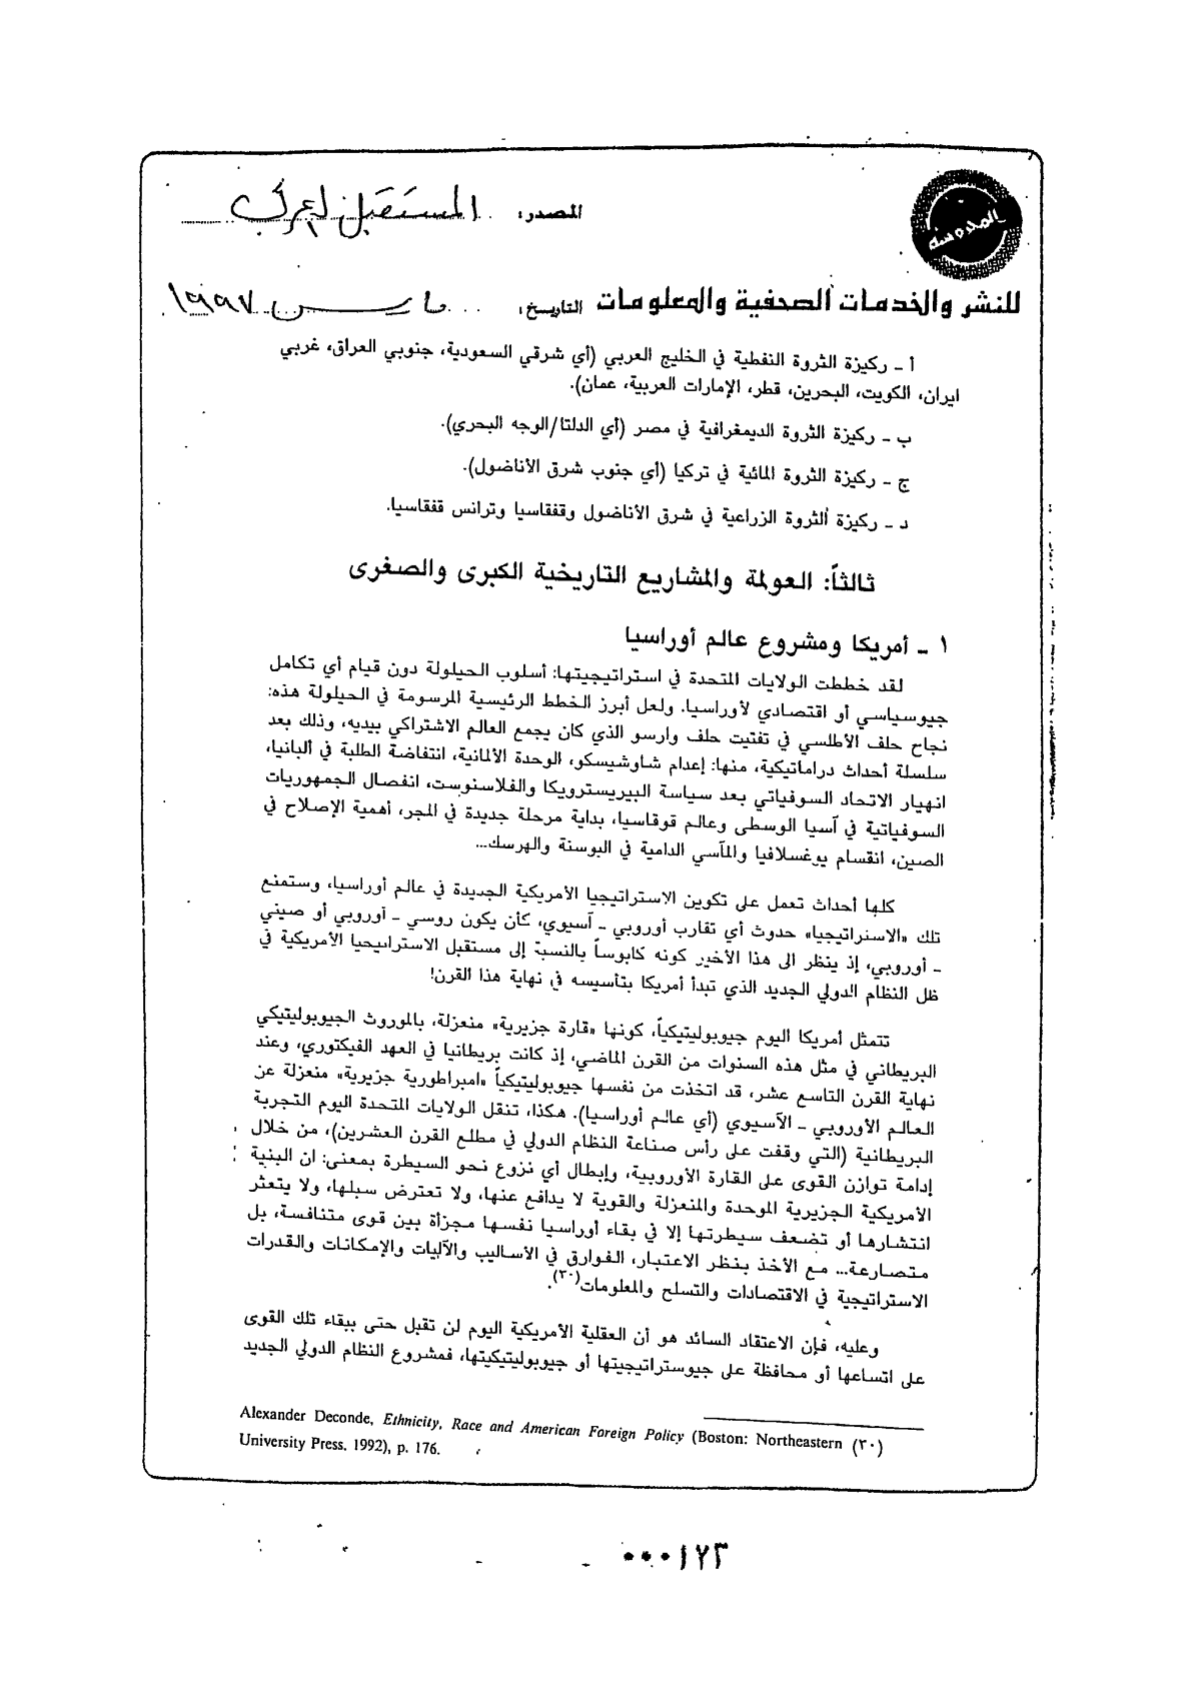 المصدر: المستقبل العربي
المحروسة
للنشر والخدمات الصحفية والمعلومات التاريخ: مارس ١٩٩٧
أ ـ ركيزة الثروة النفطية في الخليج العربي (أي شرقي السعودية، جنوبي العراق، غربي
ايران، الكويت، البحرين، قطر، الإمارات العربية، عمان).
ب ـ ركيزة الثروة الديمغرافية في مصر (أي الدلتا/الوجه البحري).
ج ـ ركيزة الثروة المائية في تركيا (أي جنوب شرق الأناضول).
د ـ ركيزة الثروة الزراعية في شرق الأناضول وقفقاسيا وترانس قفقاسيا.
ثالثاً: العولمة والمشاريع التاريخية الكبرى والصغرى
١ ـ أمريكا ومشروع عالم أوراسيا
لقد خططت الولايات المتحدة في استراتيجيتها: أسلوب الحيلولة دون قيام أي تكامل
جيوسياسي أو اقتصادي لأوراسيا. ولعل أبرز الخطط الرئيسية المرسومة في الحيلولة هذه:
نجاح حلف الأطلسي في تفتيت حلف وارسو الذي كان يجمع العالم الاشتراكي بيديه، وذلك بعد
سلسلة أحداث دراماتيكية، منها: إعدام شاوشيسكو، الوحدة الألمانية، انتفاضة الطلبة في ألبانيا،
انهيار الاتحاد السوفياتي بعد سياسة البيريسترويكا والغلاسنوست، انفصال الجمهوريات
السوفياتية في آسيا الوسطى وعالم قوقاسيا، بداية مرحلة جديدة في المجر، أهمية الإصلاح في
الصين، انقسام يوغسلافيا والمآسي الدامية في البوسنة والهرسك...
كلها أحداث تعمل على تكوين الاستراتيجيا الأمريكية الجديدة في عالم أوراسيا، وستمنع
تلك «الاستراتيجيا» حدوث أي تقارب أوروبي ـ آسيوي، كأن يكون روسي ـ أوروبي أو صيني
ـ أوروبي، إذ ينظر الى هذا الأخير كونه كابوساً بالنسبة إلى مستقبل الاستراتيجيا الأمريكية في
ظل النظام الدولي الجديد الذي تبدأ أمريكا بتأسيسه في نهاية هذا القرن!
تتمثل أمريكا اليوم جيوبوليتيكياً، كونها «قارة جزيرية» منعزلة، بالموروث الجيوبوليتيكي
البريطاني في مثل هذه السنوات من القرن الماضي، إذ كانت بريطانيا في العهد الفيكتوري، وعند
نهاية القرن التاسع عشر، قد اتخذت من نفسها جيوبوليتيكياً «امبراطورية جزيرية» منعزلة عن
العالم الأوروبي ـ الآسيوي (أي عالم أوراسيا). هكذا، تنقل الولايات المتحدة اليوم التجربة
البريطانية (التي وقفت على رأس صناعة النظام الدولي في مطلع القرن العشرين)، من خلال
إدامة توازن القوى على القارة الأوروبية، وإبطال أي نزوع نحو السيطرة بمعنى: ان البنية
الأمريكية الجزيرية الموحدة والمنعزلة والقوية لا يدافع عنها، ولا تعترض سبلها، ولا يتعثر
انتشارها أو تضعف سيطرتها إلا في بقاء أوراسيا نفسها مجزأة بين قوى متنافسة، بل
متصارعة... مع الأخذ بنظر الاعتبار، الفوارق في الأساليب والآليات والإمكانات والقدرات
الاستراتيجية في الاقتصادات والتسلح والمعلومات(٣٠).
وعليه، فإن الاعتقاد السائد هو أن العقلية الأمريكية اليوم لن تقبل حتى ببقاء تلك القوى
على اتساعها أو محافظة على جيوستراتيجيتها أو جيوبوليتيكيتها، فمشروع النظام الدولي الجديد
Alexander Deconde, Ethnicity, Race and American Foreign Policy (Boston: Northeastern (٣٠)
University Press, 1992), p. 176.
٠٠٠١٧٣